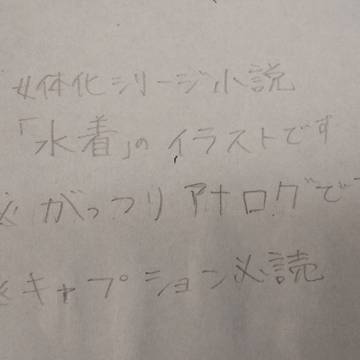 女体化シリーズ小説
「水着」のイラストです
※がっつりアナログで
※キャプション必読